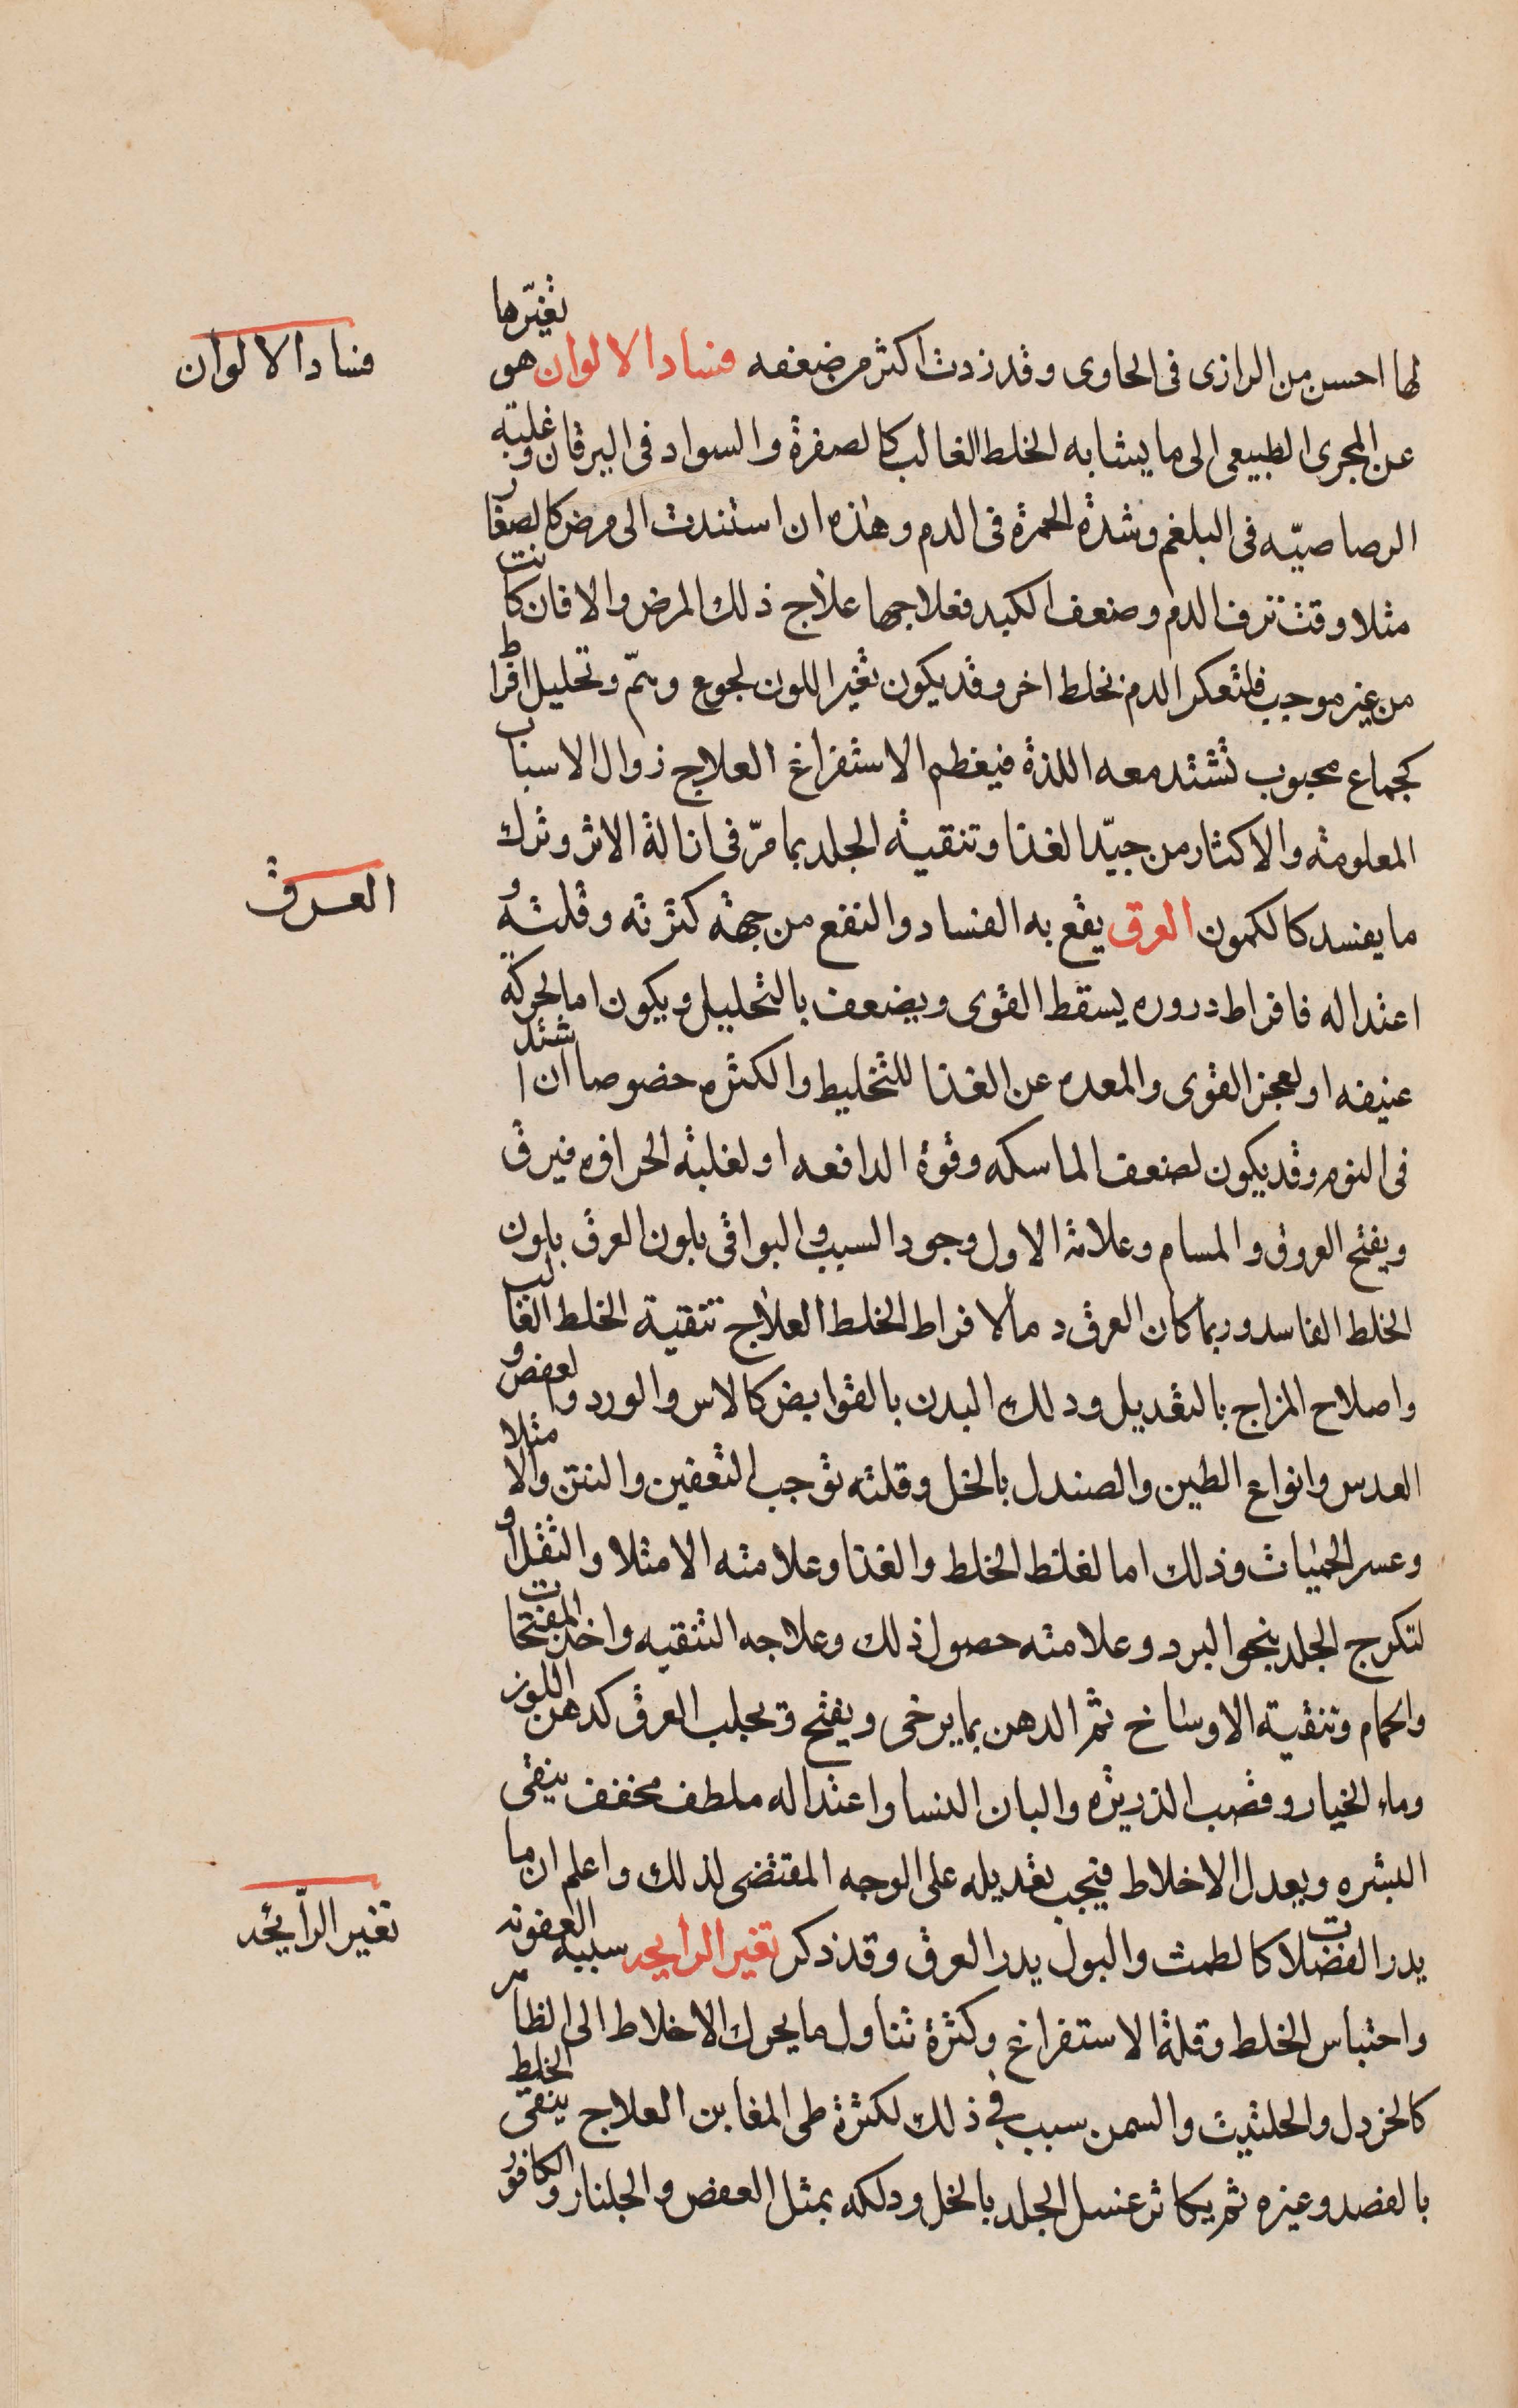 لها احسن من الرازى فى الحاوى وقد زدت اكثر من ضعفه فساد الالوان هو تغيّرها
فساد الالوان
عن المجرى الطبيعى الى ما يشابه الخلط الغالب كالصفرة والسواد فى اليرقان وغلبته
الرصاصيّه فى البلغم وشدة الحمرة فى الدم وهذه ان استندت الى مرض كالصفار
مثلا وقت نزف الدم وضعف الكبد فعلاجها علاج ذلك المرض والا فان كانت
من غير موجب فلتعكر الدم بخلط اخر وقد يكون تغير اللون لجوع وهمّ وتحليل افراط
كجماع محبوب تشتد معه اللذة فيعظم الاستفراغ العلاج زوال الاسباب
المعلومة والاكثار من جيّد الغذا وتنقية الجلد بما مرّ فى ازالة الاثر وترك
ما يفسد كالكمون العرق يقع به الفساد والنفع من جهة كثرته وقلته و
العرق
اعتداله فافراط دروره يسقط القوى ويضعف بالتحليل ويكون اما لحركة
عنيفه او لعجز القوى والمعده عن الغذا للتخليط والكثره خصوصا ان اشتد
فى النوم وقد يكون لضعف الماسكه وقوة الدافعه او لغلبة الحرافه فيرق
ويفتح العروق والمسام وعلامة الاول وجود السبب والبواقى بلون العرق بلون
الخلط الفاسد وربما كان العرق دما لافراط الخلط العلاج تنقية الخلط الغالب
واصلاح المزاج بالتعديل ودلك البدن بالقوابض كالاس والورد والعفص و
العدس وانواع الطين والصندل بالخل وقلته توجب التعفين والنتن والامتلا
وعسر الحميات وذلك اما لغلظ الخلط والغذا وعلامته الامتلا والثقل او
لتكرج الجلد بنحو البرد وعلامته حصول ذلك وعلاجه التنقيه واخذ المفتحات
والحمام وتنقية الاوساخ ثم الدهن بما يرخى ويفتح ويجلب العرق كدهن اللوز
وماء الخيار وقصب الذريره والبان النسا واعتداله ملطف مخفف ينقى
البشره ويعدل الاخلاط فيجب تعديله على الوجه المقتضى لذلك واعلم ان ما
يدر الفضلات كالطمث والبول يدر العرق وقد ذكر تغير الرايحه سببه العفونه
تغير الرّايحه
واحتباس الخلط وقلة الاستفراغ وكثرة تناول ما يحرك الاخلاط الى الظاهر
كالخردل والحلتيت والسمن سبب فى ذلك لكثرة طى المغابن العلاج ينقى الخلط
بالفصد وغيره ثم يكاثر غسل الجلد بالخل ودلكه بمثل العفص والجلنار والكافور